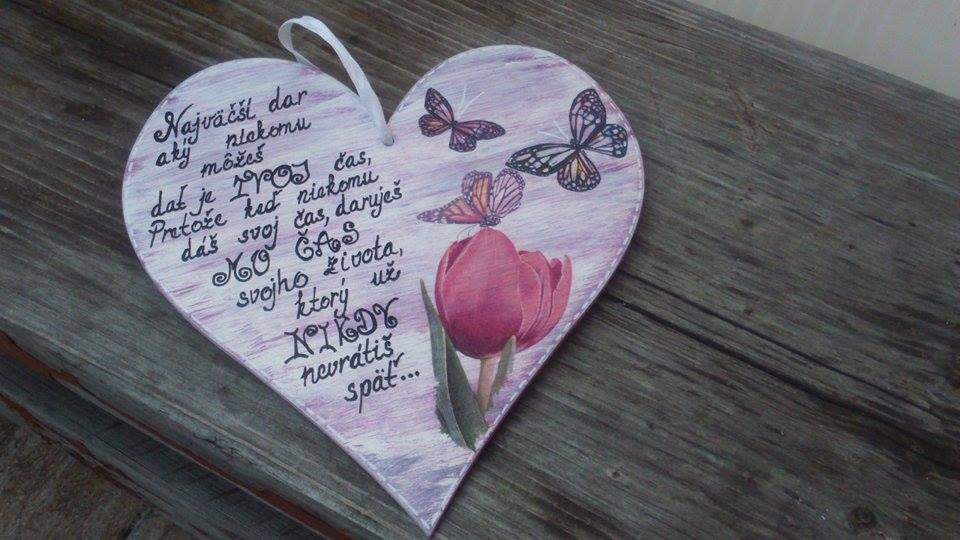 Najväčší dar
aký niekomu
môžeš
dať je TVOJ čas,
Pretože keď niekomu
dáš svoj čas, daruješ
MU ČAS
svojho života,
ktorý už
NIKDY
nevrátiš
späť...